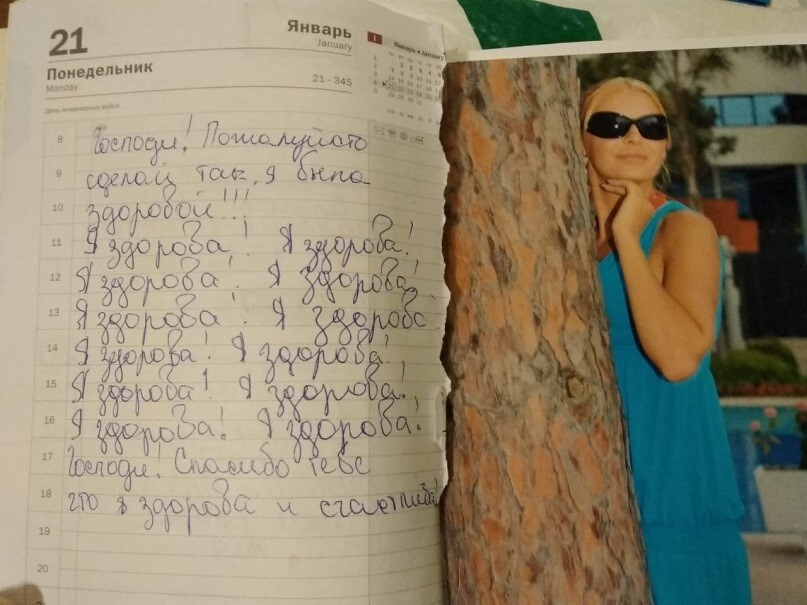 21
Январь
January
Понедельник
Monday
21 - 345
День инженерных войск
Январь • January
8 Господи! Пожалуйсто
9 сделай так, я была
10 здоровой!!!
11 Я здорова! Я здорова!
12 Я здорова! Я здорова!
13 Я здорова! Я здорова
14 Я здорова! Я здорова!
15 Я здорова! Я здорова!
16 Я здорова! Я здорова!
17 Господи! Спасибо тебе
18 что я здорова и счастлива!
19
20